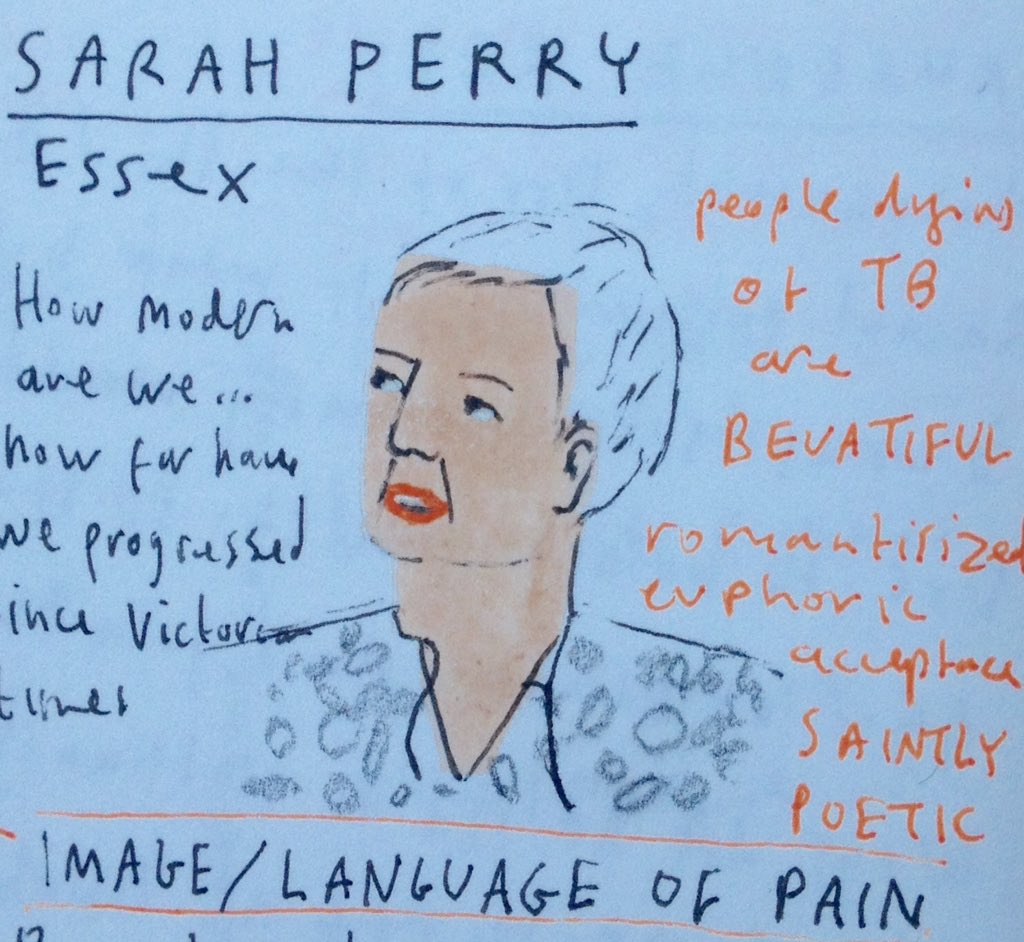 SARAH PERRY
Essex
How modern
are we...
how far have
we progressed
ince Victorian
times
people dying
of TB
are
BEUATIFUL
romantisized
euphoric
acceptance
SAINTLY
POETIC
IMAGE/LANGUAGE OF PAIN